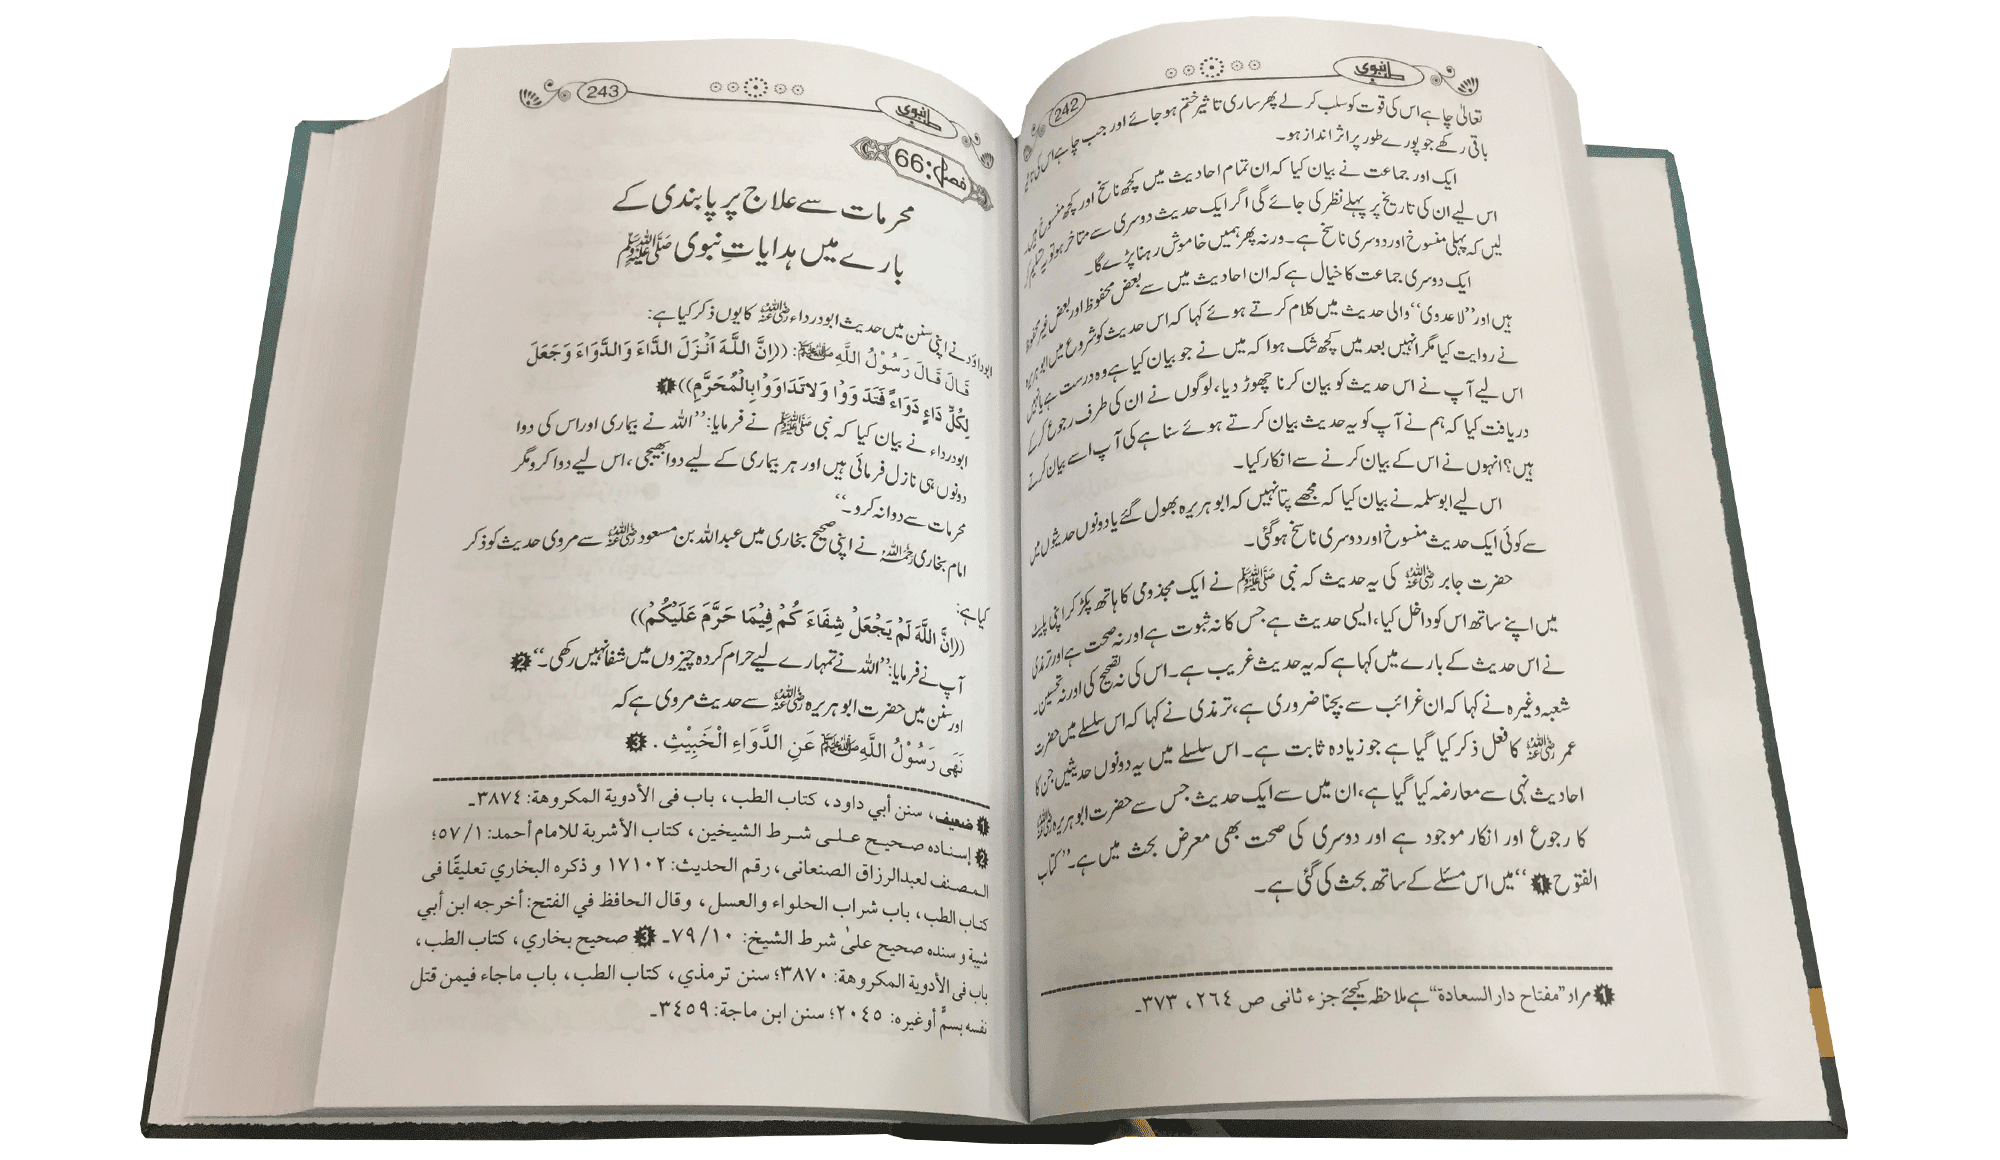 طب نبوی
242
تعالیٰ چاہے اس کی قوت کو سلب کر لے پھر ساری تاثیر ختم ہو جائے اور جب چاہے اس کی
باقی رکھے جو پورے طور پر اثر انداز ہو۔
ایک اور جماعت نے بیان کیا کہ ان تمام احادیث میں کچھ ناسخ اور کچھ منسوخ ہیں
اس لیے ان کی تاریخ پر پہلے نظر کی جائے گی اگر ایک حدیث دوسری سے متاخر ہو تو یہ تسلیم کر
لیں کہ پہلی منسوخ اور دوسری ناسخ ہے۔ ورنہ پھر ہمیں خاموش رہنا پڑے گا۔
ایک دوسری جماعت کا خیال ہے کہ ان احادیث میں سے بعض محفوظ اور بعض غیر محفوظ
ہیں اور ’’لا عدوی‘‘ والی حدیث میں کلام کرتے ہوئے کہا کہ اس حدیث کو شروع میں ابو ہریرہ
نے روایت کیا مگر انہیں بعد میں کچھ شک ہوا کہ میں نے جو بیان کیا ہے وہ درست ہے یا نہیں
اس لیے آپ نے اس حدیث کو بیان کرنا چھوڑ دیا، لوگوں نے ان کی طرف رجوع کر کے
دریافت کیا کہ ہم نے آپ کو یہ حدیث بیان کرتے ہوئے سنا ہے کی آپ اسے بیان کرتے
ہیں؟ انہوں نے اس کے بیان کرنے سے انکار کیا۔
اس لیے ابو سلمہ نے بیان کیا کہ مجھے پتا نہیں کہ ابو ہریرہ بھول گئے یا دونوں حدیثوں میں
سے کوئی ایک حدیث منسوخ اور دوسری ناسخ ہو گئی۔
حضرت جابر رضی اللہ عنہ کی یہ حدیث کہ نبی ﷺ نے ایک مجذومی کا ہاتھ پکڑ کر اپنی پلیٹ
میں اپنے ساتھ اس کو داخل کیا، ایسی حدیث ہے جس کا نہ ثبوت ہے اور نہ صحت ہے اور ترمذی
نے اس حدیث کے بارے میں کہا ہے کہ یہ حدیث غریب ہے۔ اس کی نہ تصحیح کی اور نہ تحسین۔
شعبہ وغیرہ نے کہا کہ ان غرائب سے بچنا ضروری ہے، ترمذی نے کہا کہ اس سلسلے میں حضرت
عمر رضی اللہ عنہ کا فعل ذکر کیا گیا ہے جو زیادہ ثابت ہے۔ اس سلسلے میں یہ دونوں حدیثیں جن کا
احادیث نہی سے معارضہ کیا گیا ہے، ان میں سے ایک حدیث جس سے حضرت ابو ہریرہ رضی اللہ عنہ
کا رجوع اور انکار موجود ہے اور دوسری کی صحت بھی معرض بحث میں ہے۔ ’’کتاب
الفتوح ❶ ‘‘ میں اس مسئلے کے ساتھ بحث کی گئی ہے۔
❶ مراد ”مفتاح دار السعادة“ ہے ملاحظہ کیجئے جزء ثانی ص ٢٦٤ ، ٣٧٣۔
طب نبوی
243
فصل: 66
محرمات سے علاج پر پابندی کے
بارے میں ہدایاتِ نبوی ﷺ
ابوداؤد نے اپنی سنن میں حدیث ابودرداء رضی اللہ عنہ کا یوں ذکر کیا ہے:
قَالَ قَالَ رَسُوْلُ اللَّهِ ﷺ: ((اِنَّ اللَّهَ اَنْزَلَ الدَّاءَ وَالدَّوَاءَ وَجَعَلَ
لِكُلِّ دَاءٍ دَوَاءً فَتَدَاوَوْا وَلَا تَدَاوَوْا بِالْمُحَرَّمِ)) ❶
ابودرداء نے بیان کیا کہ نبی ﷺ نے فرمایا: ’’اللہ نے بیماری اور اس کی دوا
دونوں ہی نازل فرمائی ہیں اور ہر بیماری کے لیے دوا بھیجی، اس لیے دوا کرو مگر
محرمات سے دوا نہ کرو۔‘‘
امام بخاری رحمہ اللہ نے اپنی صحیح بخاری میں عبداللہ بن مسعود رضی اللہ عنہ سے مروی حدیث کو ذکر
کیا ہے:
((اِنَّ اللَّهَ لَمْ يَجْعَلْ شِفَاءَ كُمْ فِيْمَا حَرَّمَ عَلَيْكُمْ))
آپ نے فرمایا: ’’اللہ نے تمہارے لیے حرام کردہ چیزوں میں شفا نہیں رکھی۔‘‘ ❷
اور سنن میں حضرت ابو ہریرہ رضی اللہ عنہ سے حدیث مروی ہے کہ
نَهَى رَسُوْلُ اللَّهِ ﷺ عَنِ الدَّوَاءِ الْخَبِيْثِ . ❸
❶ ضعيف، سنن أبي داود، كتاب الطب، باب فى الأدوية المكروهة: ٣٨٧٤۔
❷ إسناده صحيح على شرط الشيخين، كتاب الأشربة للامام أحمد: ١/ ٥٧؛
المصنف لعبدالرزاق الصنعانى، رقم الحديث: ١٧١٠٢ و ذكره البخاري تعليقًا فى
كتاب الطب، باب شراب الحلواء والعسل، وقال الحافظ في الفتح: أخرجه ابن أبي
شيبة و سنده صحيح علىٰ شرط الشيخ: ١٠/ ٧٩۔ ❸ صحيح بخاري، كتاب الطب،
باب فى الأدوية المكروهة: ٣٨٧٠؛ سنن ترمذي، كتاب الطب، باب ماجاء فيمن قتل
نفسه بسمٍّ أوغيره: ٢٠٤٥؛ سنن ابن ماجة: ٣٤٥٩۔